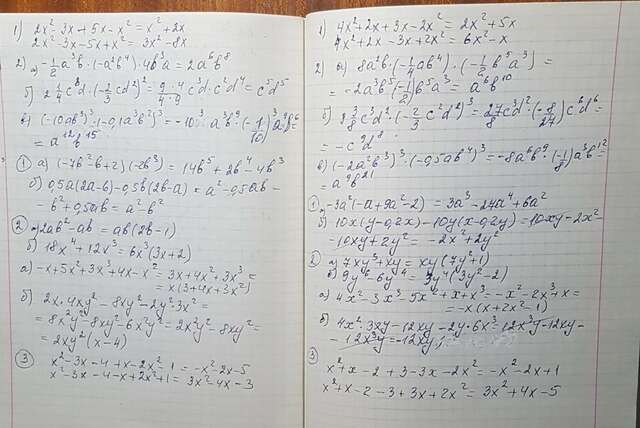 1) 2x² - 3x + 5x - x² = x² + 2x
2x² - 3x - 5x + x² = 3x² - 8x
2) а) -½a³b·(-a²b⁴)·4b³a = 2a⁶b⁸
б) 2¼c³d·(-⅔cd²)² = 9·4/4·9 c³d·c²d⁴ = c⁵d⁵
в) (-10ab³)³·(-0,1a³b²)³ = -10³a³b⁹·(-1/10)³a⁹b⁶ =
= a¹²b¹⁵
① а) (-7b²b+2)(-2b³) = 14b⁵ + 2b⁴ - 4b³
б) 0,5a(2a-b) - 0,5b(2b-a) = a² - 0,5ab -
- b² + 0,5ab = a² - b²
② а) 2ab² - ab = ab(2b-1)
б) 18x⁴ + 12x³ = 6x³(3x+2)
а) -x+5x²+3x³+4x-x² = 3x+4x²+3x³ =
= x(3+4x+3x²)
б) 2x·4xy² - 8xy² - 2y²·3x² =
= 8x²y² - 8xy² - 6x²y² = 2x²y² - 8xy² =
= 2xy²(x-4)
③ x² - 3x - 4 + x - 2x² - 1 = -x² - 2x - 5
x² - 3x - 4 - x + 2x² + 1 = 3x² - 4x - 3
1) 4x² + 2x + 3x - 2x² = 2x² + 5x
4x² + 2x - 3x + 2x² = 6x² - x
2) а) 8a²b·(-¼ab⁴)·(-½b⁵a³) =
= -2a³b⁵(-½)b⁵a³ = a⁶b¹⁰
б) 3⅜c³d²·(-⅔c²d²)³ = 27/8 c³d²·(-8/27)c⁶d⁶ =
= -c⁹d⁸
в) (-2a²b³)³·(-0,5ab⁴)³ = -8a⁶b⁹·(-⅛)a³b¹² =
= a⁹b²¹
① -3a²(-a+9a²-2) = 3a³ - 27a⁴ + 6a²
б) 10x(y-0,2x) - 10y(x-0,2y) = 10xy - 2x² -
- 10xy + 2y² = -2x² + 2y²
а) 7xy³ + xy = xy(7y²+1)
б) 9y⁶ - 6y⁴ = 3y⁴(3y²-2)
а) 4x² - 3x³ - 5x² + x + x³ = -x² - 2x³ + x =
= -x(x+2x²-1)
б) 4x²·3xy - 12xy - 2y·6x² = 12x³y - 12xy -
- 12x³y = -12xy
③
x² + x - 2 + 3 - 3x - 2x² = -x² - 2x + 1
x² + x - 2 - 3 + 3x + 2x² = 3x² + 4x - 5